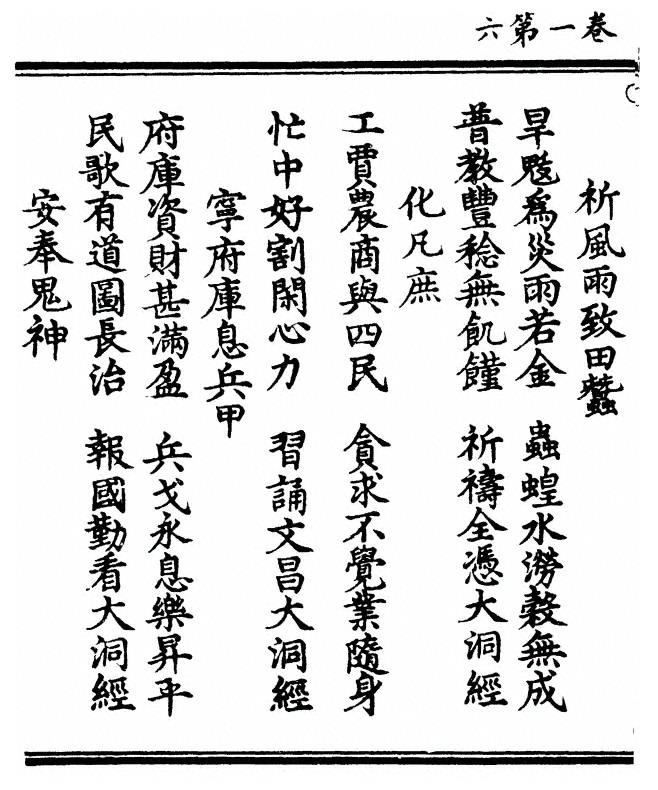 卷一第六
祈風雨致田蠶
旱魃為災雨若金 蟲蝗水澇穀無成
普教豐稔無飢饉 祈禱全憑大洞經
化凡庶
工賈農商與四民 貪求不覺業隨身
忙中好割閑心力 習誦文昌大洞經
寧府庫息兵甲
府庫資財甚滿盈 兵戈永息樂昇平
民歌有道圖長治 報國勤看大洞經
安奉鬼神